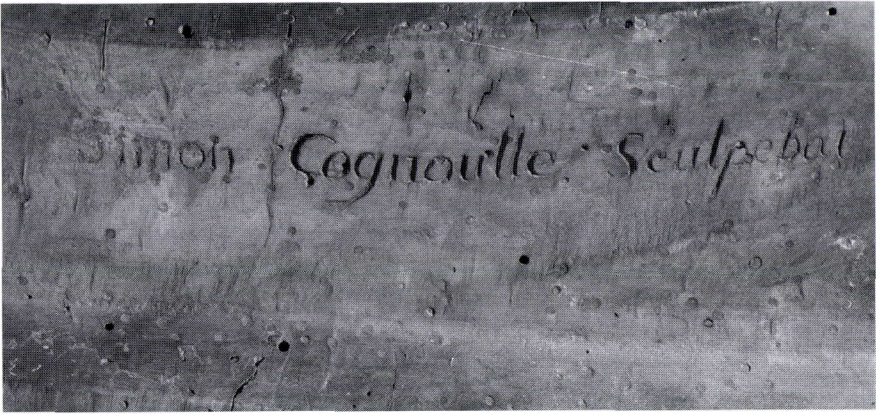 Simon Cognoulle Sculpebat